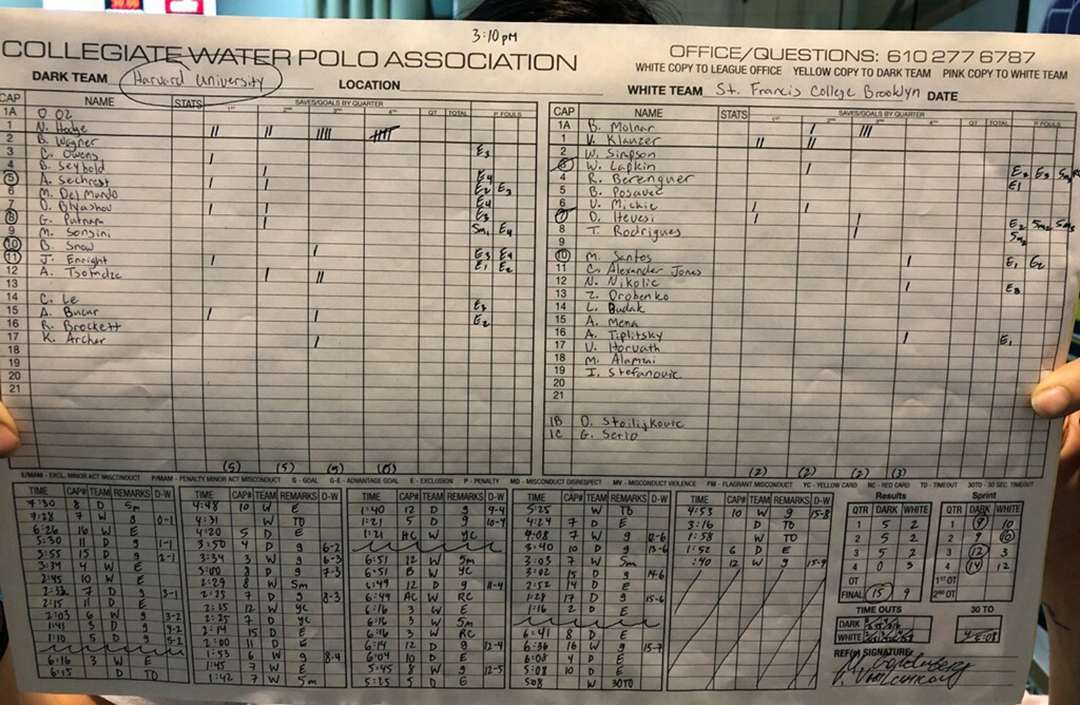 3:10 pm
COLLEGIATE WATER POLO ASSOCIATION
OFFICE/QUESTIONS: 610 277 6787
WHITE COPY TO LEAGUE OFFICE YELLOW COPY TO DARK TEAM PINK COPY TO WHITE TEAM
DARK TEAM Harvard University LOCATION
WHITE TEAM St. Francis College Brooklyn DATE
CAP NAME STATS SAVES/GOALS BY QUARTER QT TOTAL P. FOULS
1A O. Oz
1 N. Hodge
2 B. Wagner
3 C. Owens E3
4 B. Seybold
5 A. Sechrest E4
6 M. Del Mundo E2 E3
7 D. Blyashov E4
8 G. Putnam E3
9 M. Sonsini Sm, E4
10 B. Snow
11 J. Enright E3 E4
12 A. Tsotadze E1 E2
13
14 C. Le
15 A. Bucur
16 R. Brockett E2
17 K. Archer
18
19
20
21
(5) (5) (5) (0)
CAP NAME STATS SAVES/GOALS BY QUARTER QT TOTAL P. FOULS
1A B. Molnar
1 V. Klauzer
2 W. Simpson
3 W. Lapkin
4 R. Berenguer E1
5 B. Posavec
6 U. Mickic
7 D. Hevesi
8 T. Rodrigues
9
10 M. Santos E1 E2
11 C. Alexander Jones
12 N. Nikolic E3
13 Z. Drobenko
14 L. Budak
15 A. Mena
16 A. Tiplitsky E1
17 V. Horvath
18 M. Alamzai
19 I. Stefanovic
20
21
1B D. Stoilijkovic
1C G. Serio
(2) (2) (2) (3)
E/MAM - EXCL. MINOR ACT MISCONDUCT P/MAM - PENALTY MINOR ACT MISCONDUCT G - GOAL G-E - ADVANTAGE GOAL E - EXCLUSION P - PENALTY MD - MISCONDUCT DISRESPECT MV - MISCONDUCT VIOLENCE FM - FLAGRANT MISCONDUCT YC - YELLOW CARD RC - RED CARD TO - TIMEOUT 30TO - 30 SEC. TIMEOUT
TIME CAP# TEAM REMARKS D-W
7:30 8 D Sm
7:28 7 W g 0-1
6:26 16 W E
5:30 11 D g 1-1
3:55 15 D g 2-1
3:39 4 W E
2:45 10 W E
7 D g 3-1
2:15 11 D E
2:03 6 W g 3-2
1:41 3 D g 4-2
1:10 5 D g 5-2
6:16 3 W E
6:15 D TO
TIME CAP# TEAM REMARKS D-W
4:48 10 W E
4:31 W TO
4:20 5 D E
3:50 4 D g 6-2
3:34 3 W g 6-3
3:00 8 D g 7-3
2:29 8 W Sm
2:25 7 D g 8-3
2:25 12 W YC
2:25 7 D YC
2:14 15 D E
2:00 11 D E
1:53 6 W g 8-4
1:45 7 W E
1:42 7 W Sm
TIME CAP# TEAM REMARKS D-W
1:40 12 D g 9-4
1:21 5 D g 10-4
1:21 HC W YC
6:51 12 W Sm
6:51 B W YC
6:49 12 D g 11-4
6:49 AC W RC
6:16 3 W E
6:16 3 W Sm
6:16 3 W RC
6:14 12 D g 12-4
6:04 10 D E
5:45 8 W g 12-5
5:25 5 D E
TIME CAP# TEAM REMARKS D-W
5:25 W TO
4:24 7 D E
4:08 7 W g 12-6
3:40 10 D g 13-6
3:03 7 W Sm
3:02 15 D g 14-6
2:52 14 D E
1:28 17 D g 15-6
1:16 2 D E
6:41 8 D E
6:36 16 W g 15-7
6:08 4 D E
5:08 10 D E
5:08 W 30TO
TIME CAP# TEAM REMARKS D-W
4:53 10 W g 15-8
3:16 D TO
1:58 W TO
1:52 6 D E
:40 12 W g 15-9
Results
QTR DARK WHITE
1 5 2
2 5 2
3 5 2
4 0 3
OT
FINAL 15 9
Sprint
QTR DARK WHITE
1 9 10
2 9 10
3 12 3
4 14 12
1st OT
2nd OT
TIME OUTS
DARK
WHITE
30 TO
REF(s) SIGNATURE: